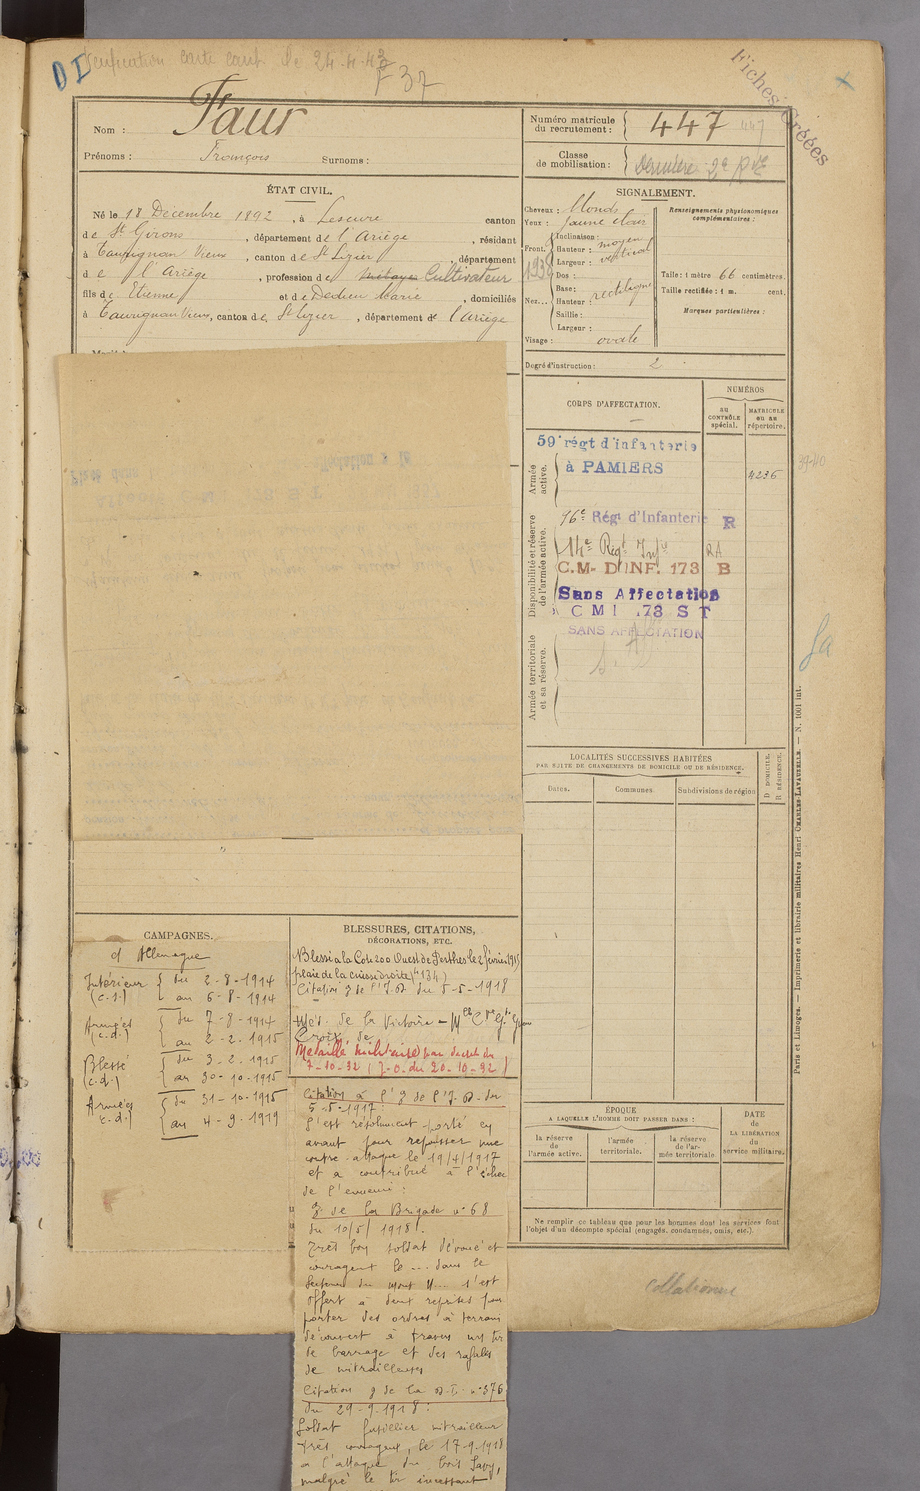 DI
carte comb. le 24-4-43
F37
Fiches Créées
Nom : Faur
Prénoms : François Surnoms :
Numéro matricule du recrutement : 447 447
Classe de mobilisation : Dernière 2e
ÉTAT CIVIL.
Né le 18 Décembre 1892, à Lescure canton
de St Girons, département de l'Ariège, résidant
à Taurignan Vieux, canton de St Lizier, département
de l'Ariège, profession de Cultivateur
fils de Etienne et de Dedieu Marie, domiciliés
à Taurignan Vieux, canton de St Lizier, département de l'Ariège
SIGNALEMENT.
Cheveux : blonds
Yeux : jaune clair
Front. Inclinaison :
Hauteur : moyen
Largeur : vertical
1938
Nez... Dos :
Base :
Hauteur : rectiligne
Saillie :
Largeur :
Visage : ovale
Renseignements physionomiques complémentaires :
Taille : 1 mètre 66 centimètres.
Taille rectifiée : 1 m. cent.
Marques particulières :
Degré d'instruction : 2
CORPS D'AFFECTATION.
NUMÉROS
au CONTRÔLE spécial.
MATRICULE ou au répertoire.
Armée active.
59e régt d'infanterie
à PAMIERS
4236
39-40
Disponibilité et réserve de l'armée active.
96e Régt d'Infanterie R
14e Régt Infie RA
C.M- D'INF. 173 B
Sans Affectation
C M I 173 S T
SANS AFFECTATION
Armée territoriale et sa réserve.
LOCALITÉS SUCCESSIVES HABITÉES
PAR SUITE DE CHANGEMENTS DE DOMICILE OU DE RÉSIDENCE.
Dates. Communes. Subdivisions de région
D DOMICILE.
R RÉSIDENCE.
Paris et Limoges. — Imprimerie et librairie militaires Henri CHARLES-LAVAUZELLE. — N. 1001 int.
CAMPAGNES.
d'Allemagne
Intérieur (c.s.) du 2-8-1914
au 6-8-1914
Armées (c.d.) du 7-8-1914
au 2-2-1915
Blessé (c.d.) du 3-2-1915
au 30-10-1915
Armées c.d.) du 31-10-1915
au 4-9-1919
BLESSURES, CITATIONS,
DÉCORATIONS, ETC.
Blessé à la Cote 200 Ouest de Perthes le 2 février 1915
plaie de la cuisse droite
Citation à l'I.D du 5-5-1918
Méd. de la Victoire
Croix de
Médaille militaire par décret du
7-10-32 (J.O. du 20-10-32)
Citation à l'O de l'I.D. du
5-5-1917
S'est résolument porté en
avant pour repousser une
contre-attaque le 19/4/1917
et a contribué à l'échec
de l'ennemi :
O de la Brigade n° 68
du 10/5/1918.
Très bon soldat dévoué et
courageux le ... dans le
secteur du mont H... s'est
offert à deux reprises pour
porter des ordres à terrain
découvert à travers un tir
de barrage et des rafales
de mitrailleuses
Citation O de la D.I. n° 376
du 29-9-1918 :
Soldat fusilier mitrailleur
très courageux, le 17-9-1918
à l'attaque du bois
malgré le tir incessant
ÉPOQUE
A LAQUELLE L'HOMME DOIT PASSER DANS :
la réserve de l'armée active.
l'armée territoriale.
la réserve de l'armée territoriale
DATE
de
LA LIBÉRATION
du
service militaire.
Ne remplir ce tableau que pour les hommes dont les services font
l'objet d'un décompte spécial (engagés, condamnés, omis, etc.).
Collationné